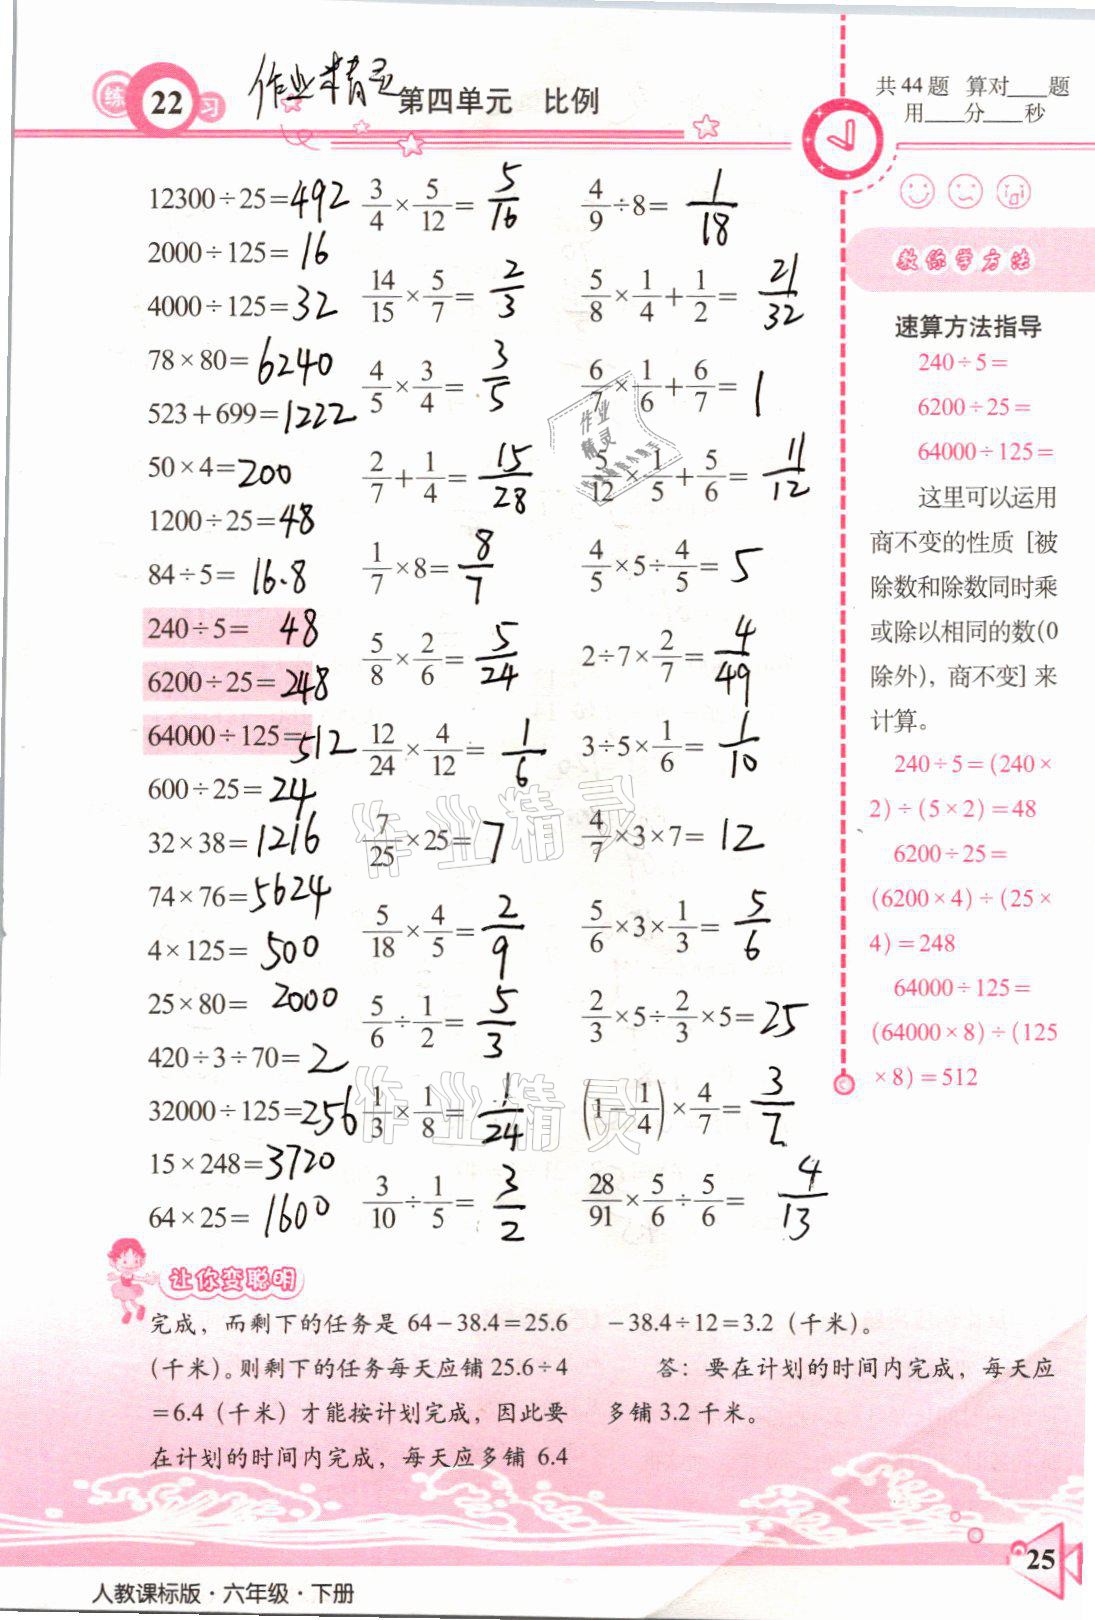 练 22 习
作业精灵
第四单元 比例
共44题 算对____题
用____分____秒
12300÷25=492
2000÷125=16
4000÷125=32
78×80=6240
523+699=1222
50×4=200
1200÷25=48
84÷5=16.8
240÷5=48
6200÷25=248
64000÷125=512
600÷25=24
32×38=1216
74×76=5624
4×125=500
25×80=2000
420÷3÷70=2
32000÷125=256
15×248=3720
64×25=1600
3/4×5/12=5/16
14/15×5/7=2/3
4/5×3/4=3/5
2/7+1/4=15/28
1/7×8=8/7
5/8×2/6=5/24
12/24×4/12=1/6
7/25×25=7
5/18×4/5=2/9
5/6÷1/2=5/3
1/3×1/8=1/24
3/10÷1/5=3/2
4/9÷8=1/18
5/8×1/4+1/2=21/32
6/7×1/6+6/7=1
5/12×1/5+5/6=11/12
4/5×5÷4/5=5
2÷7×2/7=4/49
3÷5×1/6=1/10
4/7×3×7=12
5/6×3×1/3=5/6
2/3×5÷2/3×5=25
(1-1/4)×4/7=3/7
28/91×5/6÷5/6=4/13
教你学方法
速算方法指导
240÷5=
6200÷25=
64000÷125=
这里可以运用
商不变的性质[被
除数和除数同时乘
或除以相同的数(0
除外),商不变]来
计算。
240÷5=(240×
2)÷(5×2)=48
6200÷25=
(6200×4)÷(25×
4)=248
64000÷125=
(64000×8)÷(125
×8)=512
让你变聪明
完成，而剩下的任务是 64-38.4=25.6
(千米)。则剩下的任务每天应铺 25.6÷4
=6.4（千米）才能按计划完成，因此要
在计划的时间内完成，每天应多铺 6.4
-38.4÷12=3.2（千米）。
答：要在计划的时间内完成，每天应
多铺3.2千米。
作业精灵
作业精灵
作业精灵
25
人教课标版·六年级·下册